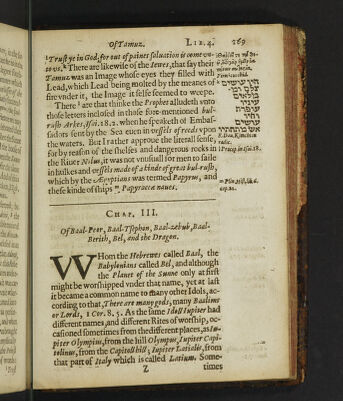 Of Tamuz. LIB. 4. 169
Trust ye in God, for out of
There are likewise of the Jewes, that say their
Tamuz was an Image whose eyes they filled with
Lead, which Lead being molted by the meanes of
fire vnder it, the Image it selfe seemed to weepe.
There are that thinke the Prophet alludeth vnto
those letters inclosed in those fore-mentioned bul-
rush Arkes, Isai. 18. 2. when he speaketh of Embas-
sadors sent by the Sea euen in vessels of reeds vpon
the waters. But I rather approue the literall sense;
for by reason of the shelves and dangerous rocks in
the Riuer Nilus, it was not vnusuall for men to saile
in hulkes and vessels made of a kinde of great bul-rush,
which by the Ægyptians was termed Papyrus, and
these kinde of ships Papyraceæ naues.
CHAP. III.
Of Baal-Peor, Baal-Tsephon, Baal-zebub, Baal-
Berith, Bel, and the Dragon.
WHom the Hebrewes called Baal, the
Babylonians called Bel, and although
the Planet of the Sunne only at first
might be worshipped vnder that name, yet at last
it became a common name to many other Idols, ac-
cording to that, There are many gods, many Baalims
or Lords, 1 Cor. 8. 5. As the same Idoll Iupiter had
different names, and different Rites of worship, oc-
casioned sometimes from the different places, as Iu-
piter Olympius, from the hill Olympus, Iupiter Capi-
tolinus, from the Capitoll hill; Iupiter Latialis, from
that part of Italy which is called Latium. Some-
Z times